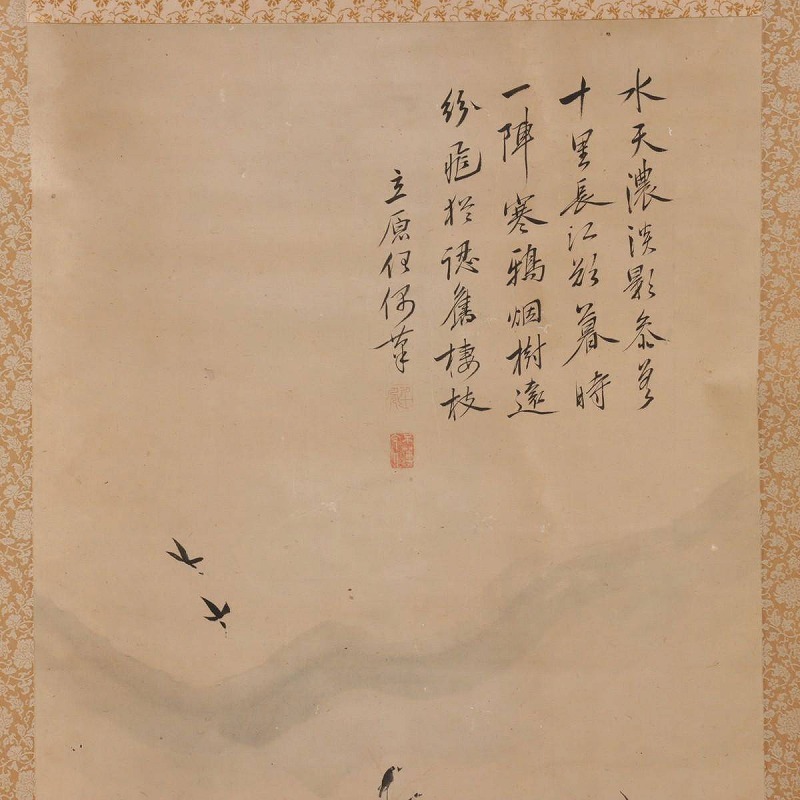 水天濃淡影參差
十里長江欲暮時
一陣寒鴉烟樹遠
紛飛猶認舊棲枝
立原任偶筆